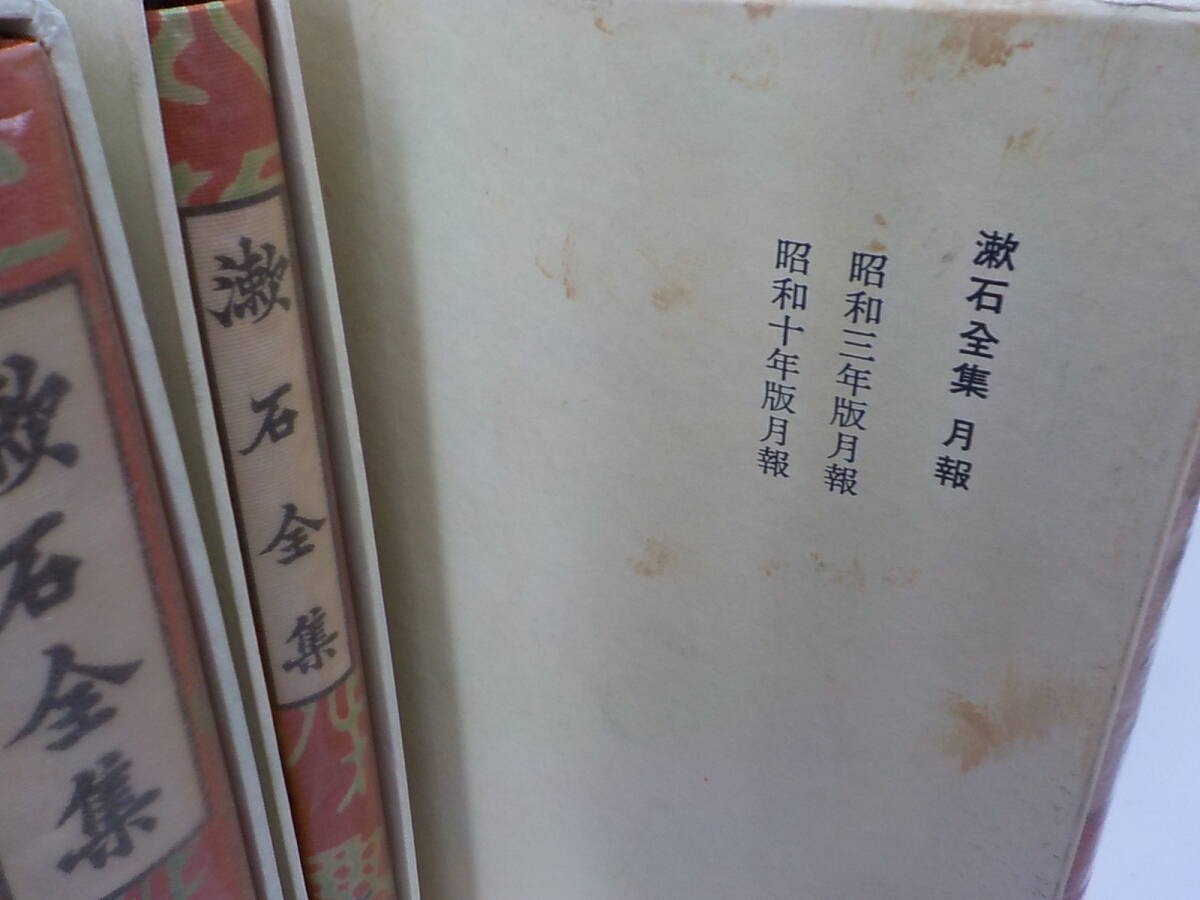 漱石全集 月報
昭和三年版月報
昭和十年版月報
漱石全集
漱石全集